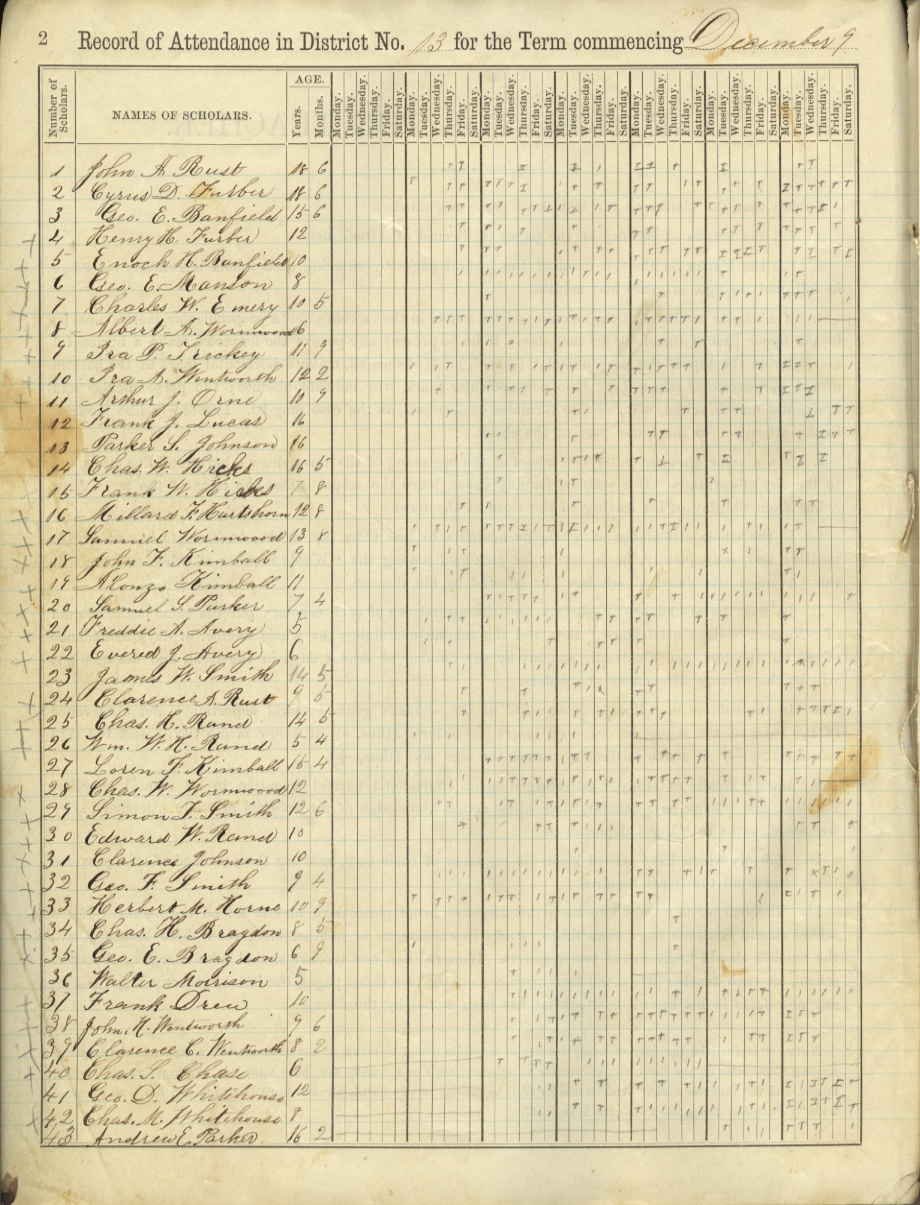 2 Record of Attendance in District No. 13 for the Term commencing December 9
Number of Scholars. NAMES OF SCHOLARS. AGE. Years. Months. Monday. Tuesday. Wednesday. Thursday. Friday. Saturday. Monday. Tuesday. Wednesday. Thursday. Friday. Saturday. Monday. Tuesday. Wednesday. Thursday. Friday. Saturday. Monday. Tuesday. Wednesday. Thursday. Friday. Saturday. Monday. Tuesday. Wednesday. Thursday. Friday. Saturday. Monday. Tuesday. Wednesday. Thursday. Friday. Saturday. Monday. Tuesday. Wednesday. Thursday. Friday. Saturday.
1 John A. Rust 18 6
2 Cyrus D. Furber 18 6
3 Geo. E. Banfield 15 6
4 Henry H. Furber 12
5 Enoch H. Banfield 10
6 Geo. E. Manson 8
7 Charles W. Emery 10 5
8 Albert A. Wormwood 6
9 Ira P. Trickey 11 9
10 Ira A. Wentworth 12 2
11 Arthur J. Orne 10 9
12 Frank J. Lucas 16
13 Parker S. Johnson 16
14 Chas. W. Hicks 16 5
15 Frank W. Hicks 7 8
16 Millard F. Hartshorn 12 8
17 Samuel Wormwood 13 8
18 John F. Kimball 9
19 Alonzo Kimball 11
20 Samuel S. Parker 7 4
21 Freddie A. Avery 5
22 Evered J. Avery 6
23 James W. Smith 14 5
24 Clarence A. Rust 9 5
25 Chas. H. Rand 14 5
26 Wm. W. H. Rand 5 4
27 Loren F. Kimball 15 4
28 Chas. W. Wormwood 12
29 Simon T. Smith 12 6
30 Edward W. Rand 10
31 Clarence Johnson 10
32 Geo. F. Smith 9 4
33 Herbert M. Horne 10 9
34 Chas. H. Bragdon 8 5
35 Geo. E. Bragdon 6 9
36 Walter Morrison 5
37 Frank Drew 10
38 John H. Wentworth 9 6
39 Clarence C. Wentworth 8 2
40 Chas. S. Chase 6
41 Geo. D. Whitehouse 12
42 Chas. M. Whitehouse 8
43 Andrew E. Parker 16 2